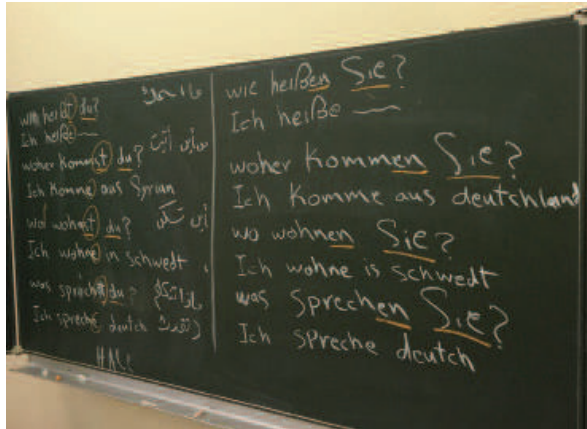 wie heißt du?
Ich heiße
woher kommst du? من أين أتيت
Ich komme aus Syrian
wo wohnst du? أين تسكن
Ich wohne in schwedt
was sprichst du?
Ich spreche deutch
HALL
wie heißen Sie?
Ich heiße
woher kommen Sie?
Ich komme aus deutchland
wo wohnen Sie?
Ich wohne is schwedt
was sprechen Sie?
Ich spreche deutch